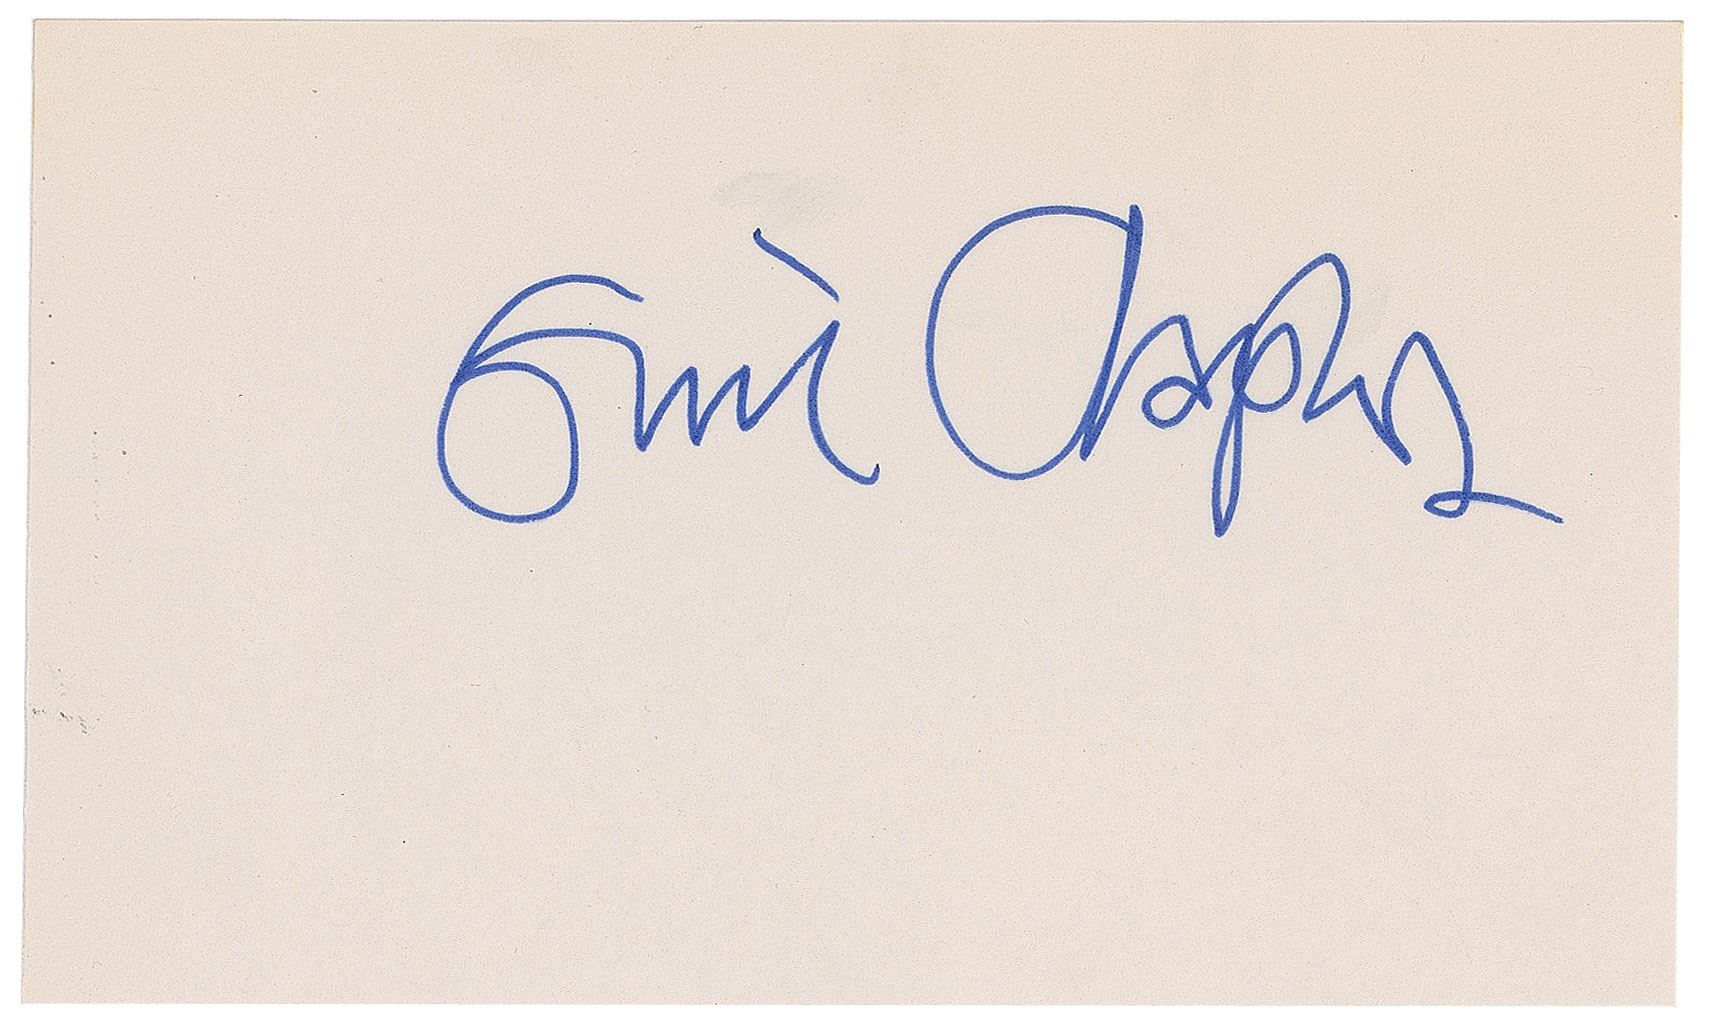 Eric Clapton